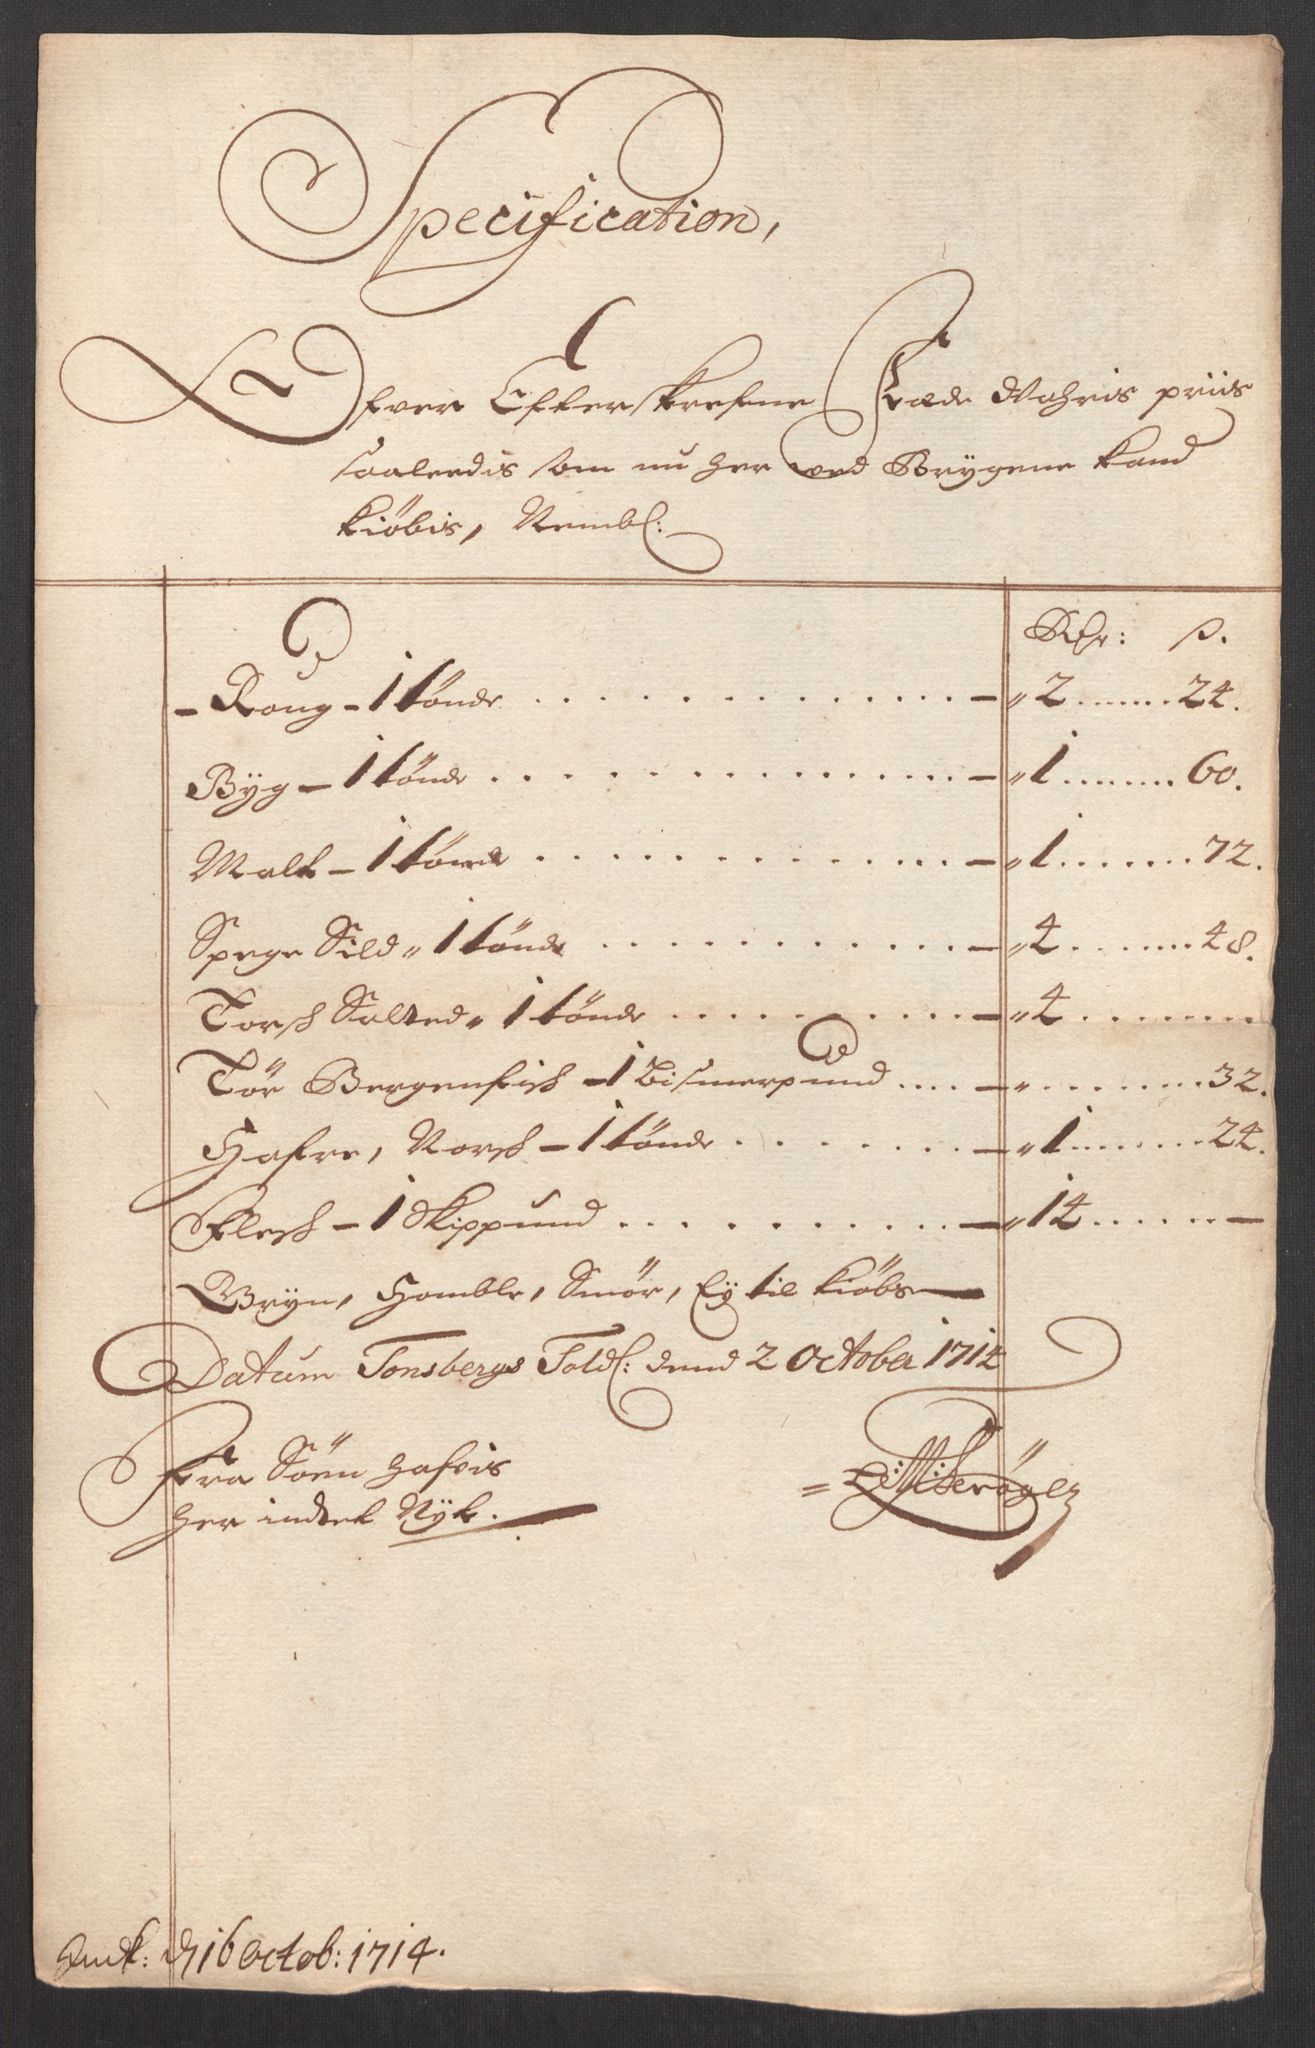 Specification,
Ofver Efterskrefne Fæde Wahris priis
saaledis som nu her ved Brygene kand
kiöbis, Nembl:
Rdr: s.
Roug - 1 tönde - 2 24.
Byg - 1 tönde - 1 60.
Malt - 1 tönde - 1 72.
Spege Sild 1 tönde - 4 48.
Torsk Salted 1 tönde - 4
Tör Bergenfisk - 1 Bismerpund - 32.
Hafre, Norsk - 1 tönde - 1 24.
Flesk - 1 Skippund - 14 -
Gryn, Homble, Smör, Ey til kiöbs -
Datum Tonsbergs Told: dend 2 October 1714
Fra Söen hafvis
her indtet Nyt.
dk: d 16 Octob: 1714.